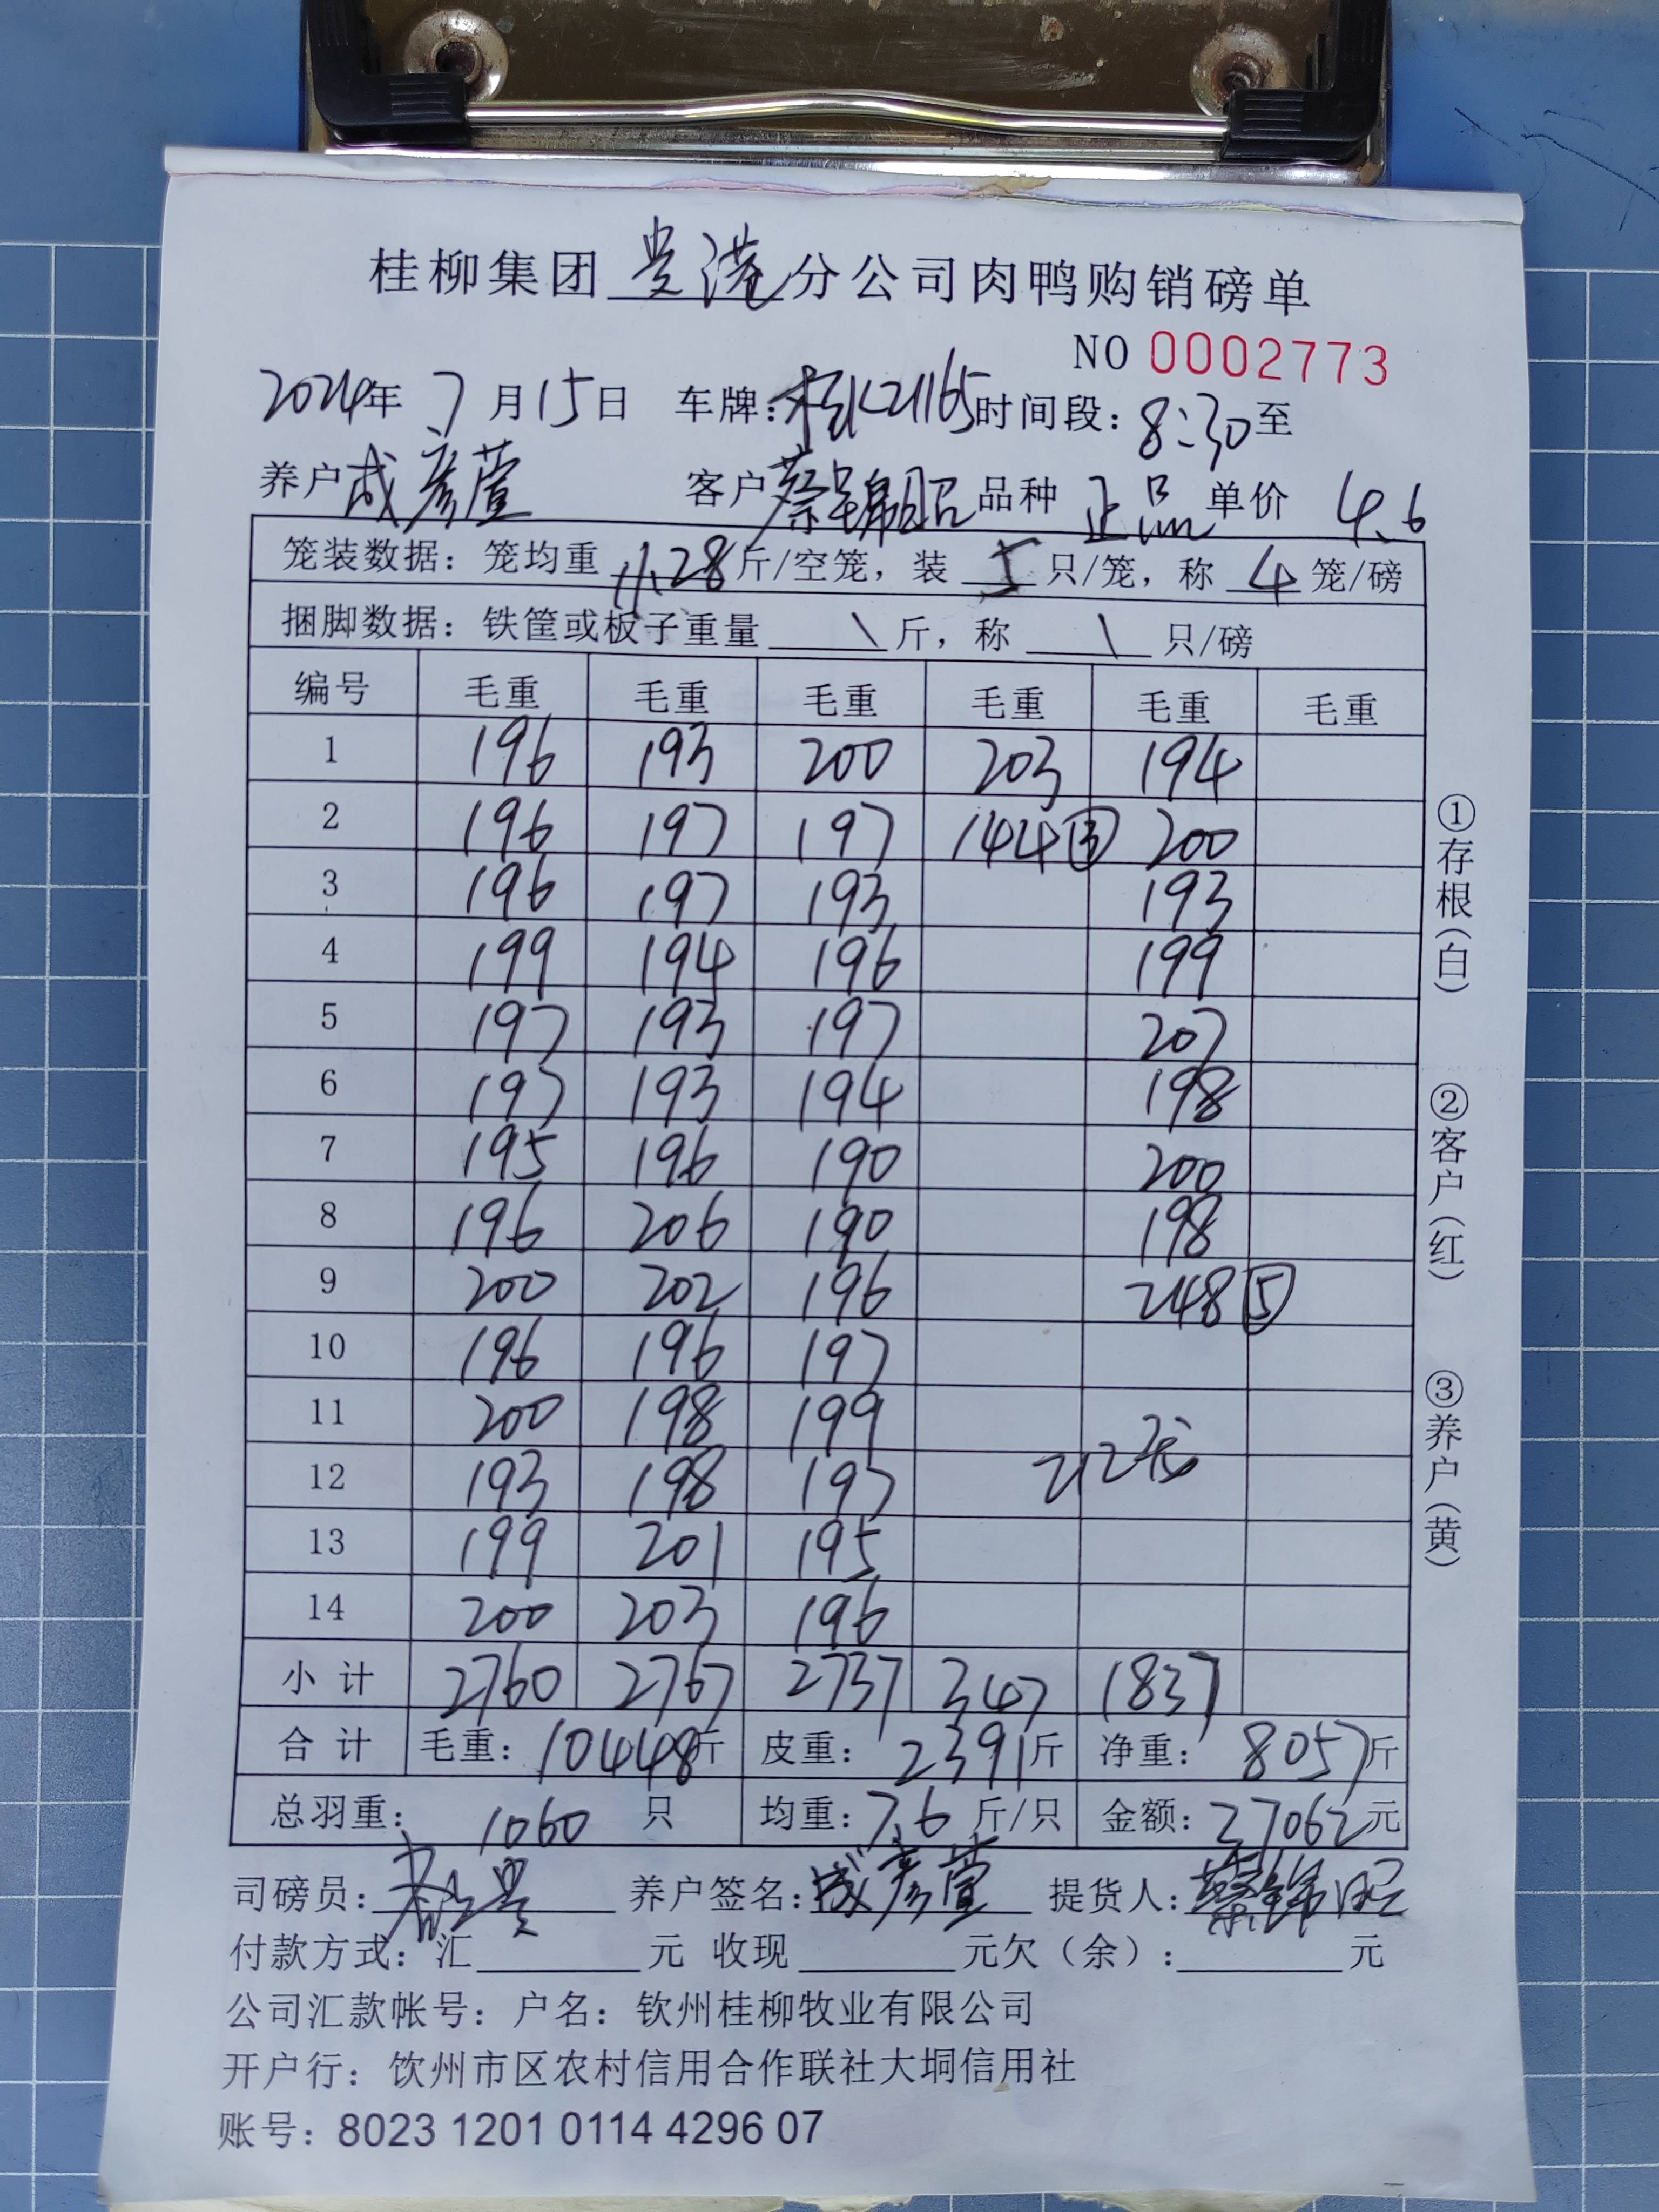 桂柳集团贵港分公司肉鸭购销磅单
NO 0002773
2024年7月15日 车牌:桂K21165时间段:8:30至
养户成彦萱 客户蔡锦昭品种 正品 单价 4.6
笼装数据:笼均重 11.28斤/空笼,装 5 只/笼,称 4 笼/磅
捆脚数据:铁筐或板子重量 \ 斤,称 \ 只/磅
编号 毛重 毛重 毛重 毛重 毛重 毛重
1 196 193 200 203 194
2 196 197 197 144③ 200
3 196 197 193 193
4 199 194 196 199
5 197 193 197 207
6 197 193 194 198
7 195 196 190 200
8 196 206 190 198
9 200 202 196 248⑤
10 196 196 197
11 200 198 199
12 193 198 197 212笼
13 199 201 195
14 200 203 196
小计 2760 2767 2737 347 1837
合计 毛重:10448斤 皮重:2391斤 净重:8057斤
总羽重:1060 只 均重:7.6 斤/只 金额:37062元
司磅员: 养户签名:成彦萱 提货人:蔡锦昭
付款方式:汇 元 收现 元欠(余): 元
公司汇款帐号:户名:钦州桂柳牧业有限公司
开户行:饮州市区农村信用合作联社大垌信用社
账号:8023 1201 0114 4296 07
①存根(白)
②客户(红)
③养户(黄)